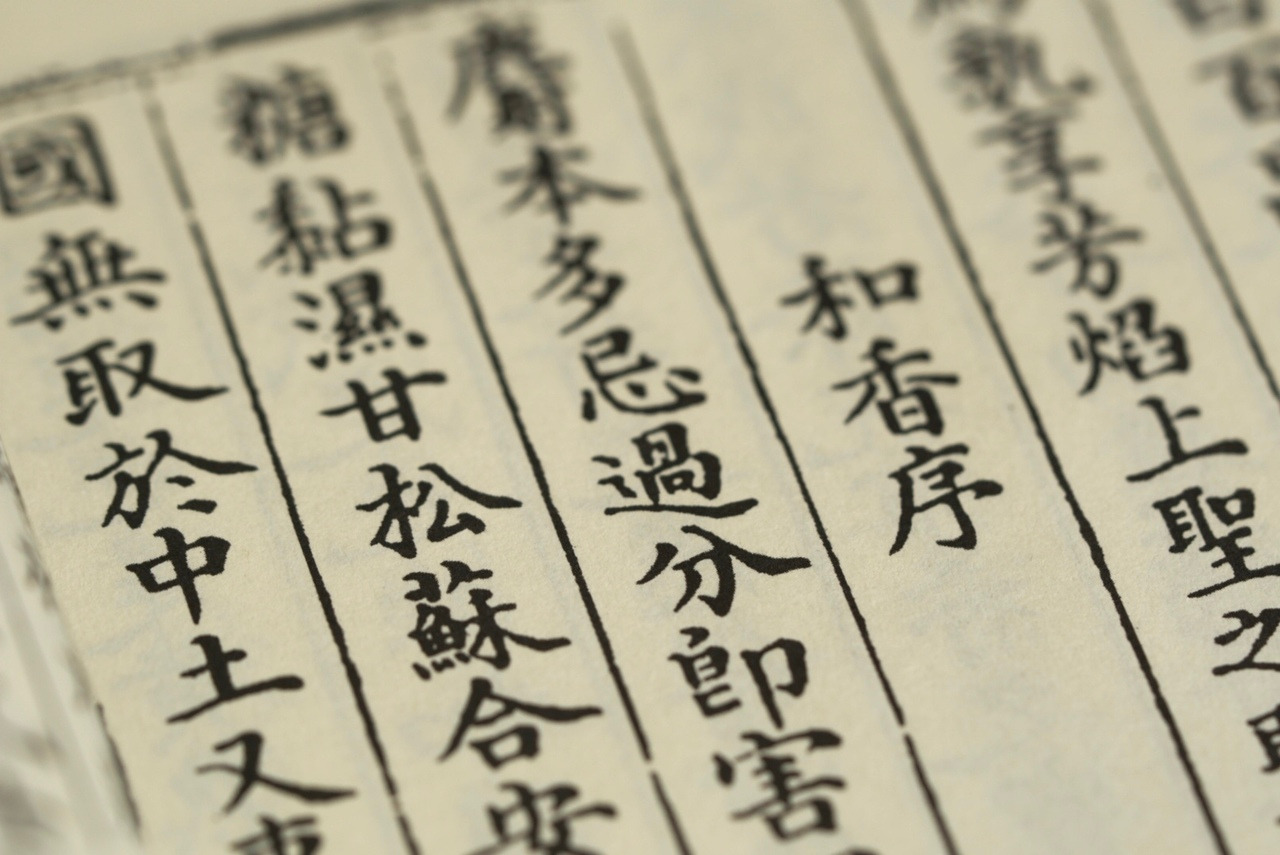 享芳焰上聖之
和香序
麝本多忌過分即害
糖黏濕甘松蘇合安
國無取於中土又